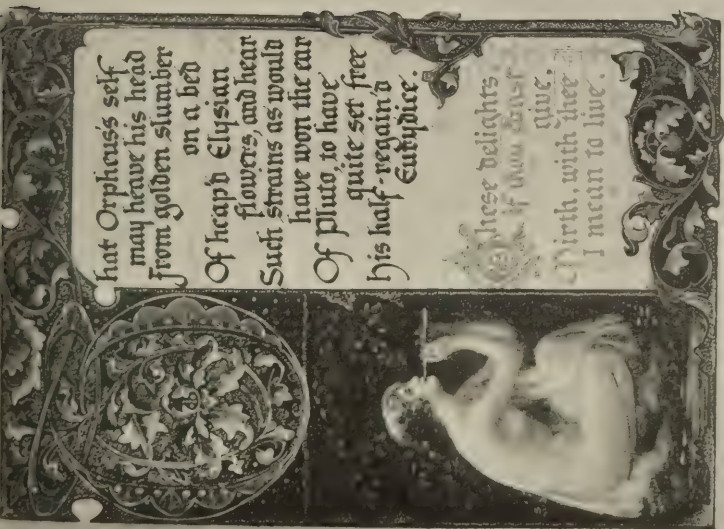 That Orpheus's self
may heave his head
From golden slumber
on a bed
Of heap'd Elysian
flowers, and hear
Such strains as would
have won the ear
Of Pluto, to have
quite set free
his half-regain'd
Eurydice.
These delights,
if thou canst
give,
Mirth, with thee
I mean to live.